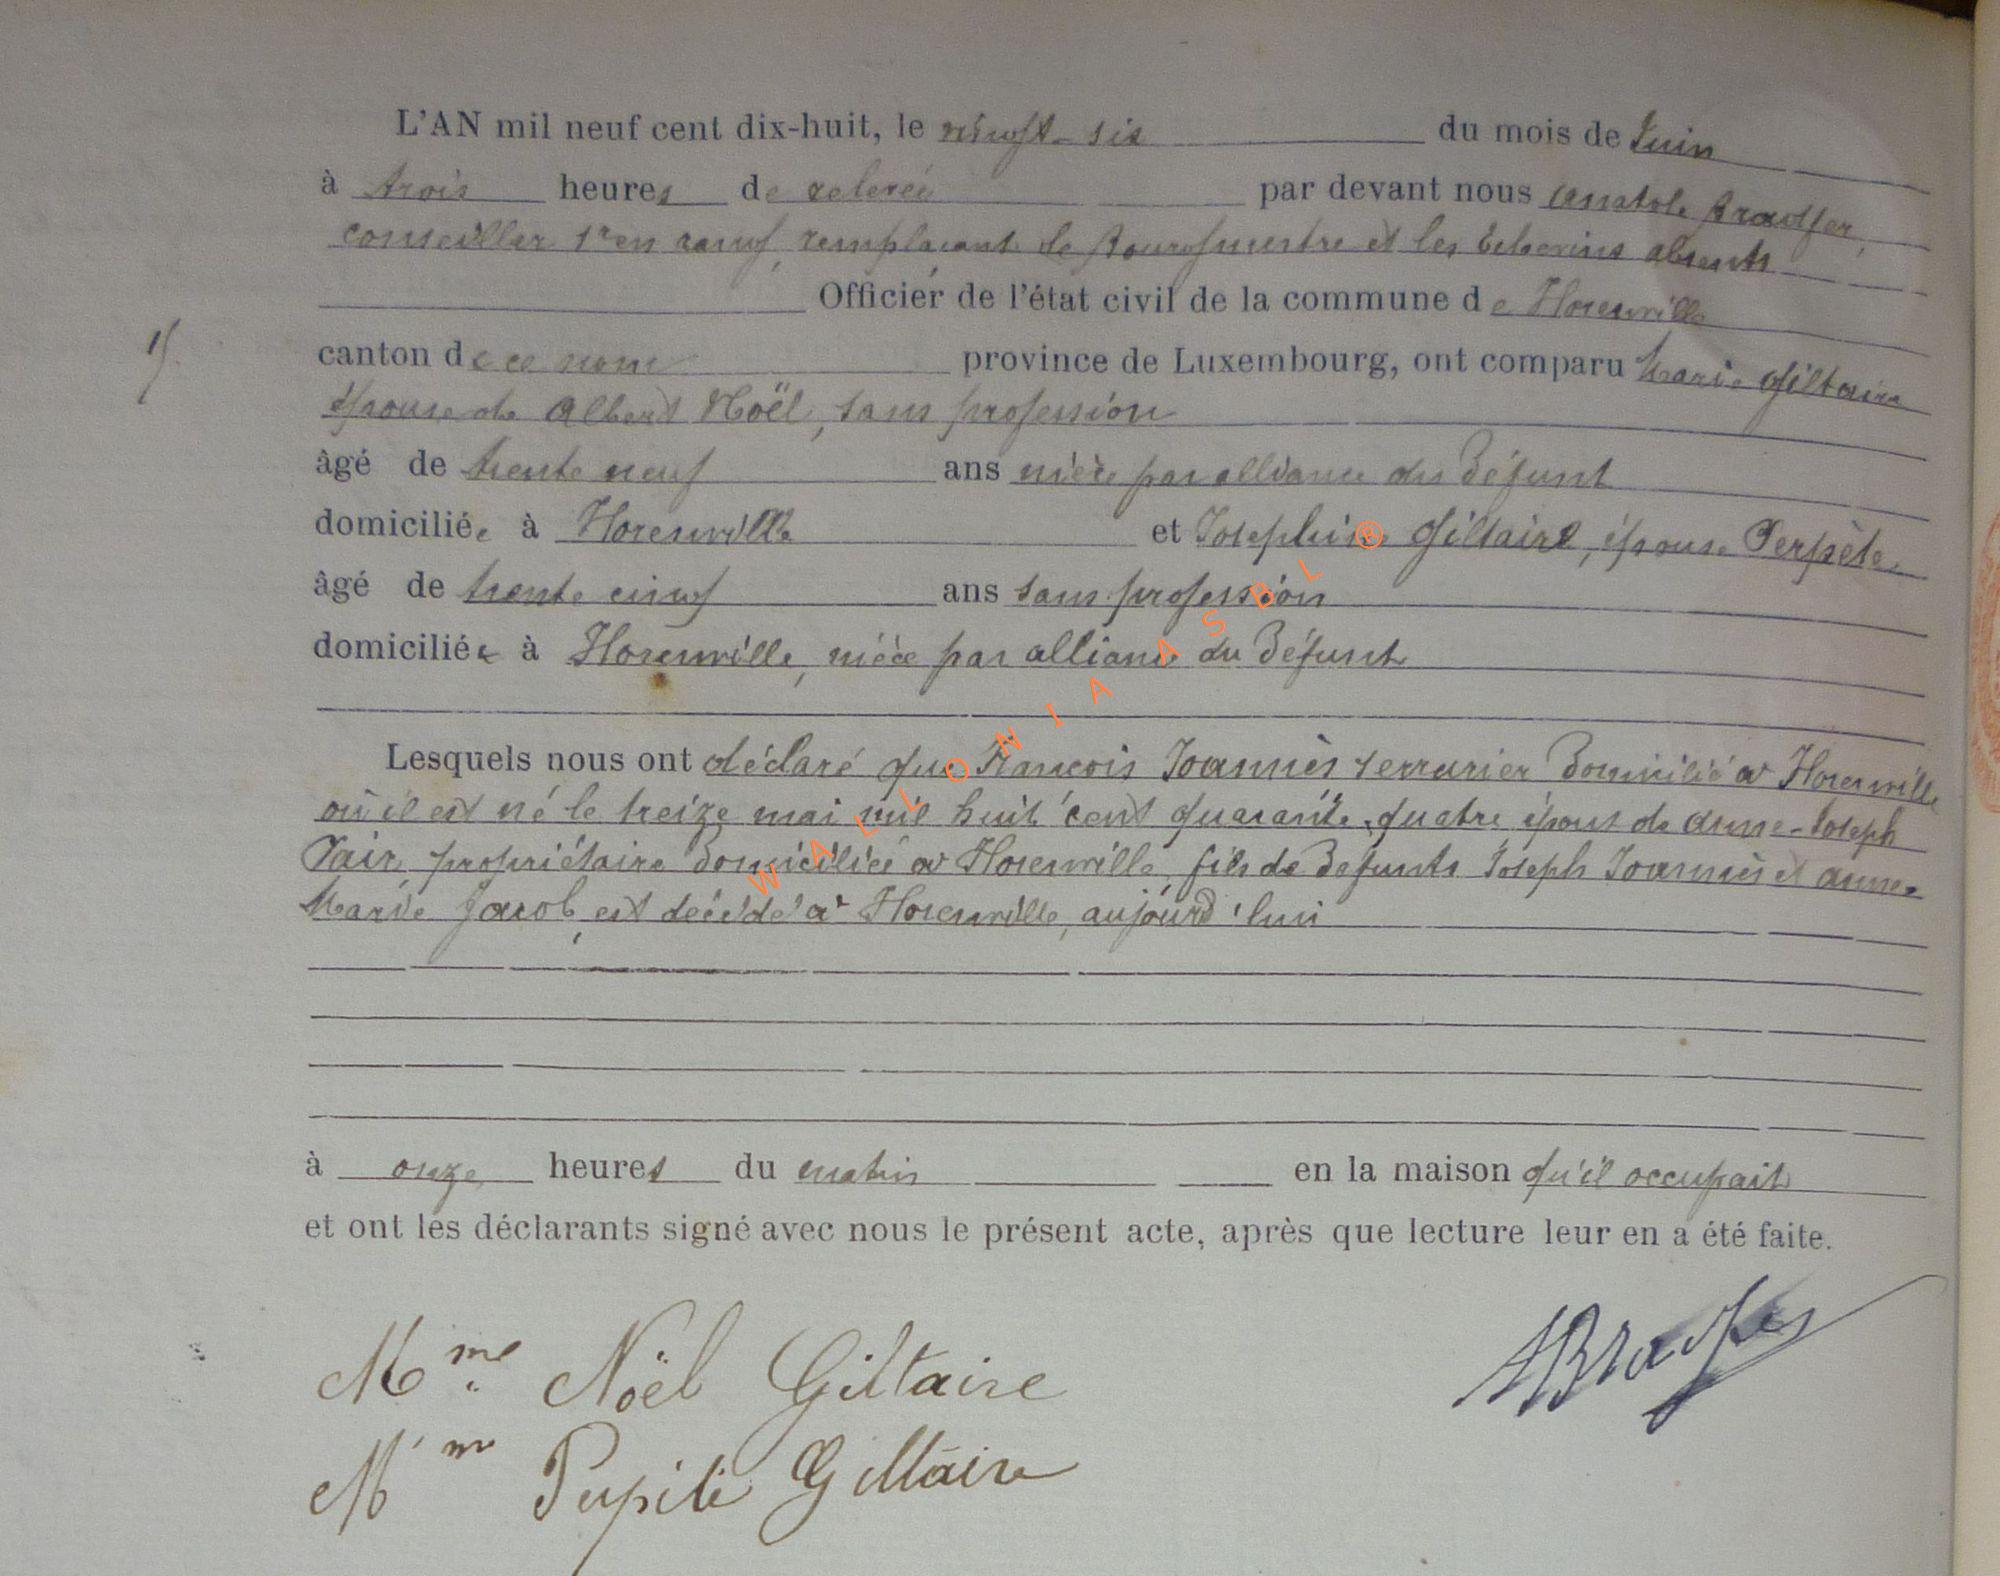 L'AN mil neuf cent dix-huit, le vingt-six du mois de Juin
à trois heures de relevée par devant nous Anatole Braffer,
conseiller 1er en rang, remplaçant le Bourgmestre et les Echevins absents
Officier de l'état civil de la commune de Florenville
15.
canton de ce nom province de Luxembourg, ont comparu Marie Giltaire
épouse de Albert Noël, sans profession
âgé de trente neuf ans nièce par alliance du défunt
domiciliée à Florenville et Joséphine Giltaire, épouse Perpète,
âgé de trente cinq ans sans profession
domiciliée à Florenville, nièce par alliance du défunt
Lesquels nous ont déclaré que François Joannès serrurier domicilié à Florenville
où il est né le treize mai mil huit cent quarante-quatre époux de Anne-Joseph
propriétaire domiciliée à Florenville, fils de défunts Joseph Joannès et Anne-
Marie Jacob, est décédé à Florenville, aujourd'hui
à onze heures du matin en la maison qu'il occupait
et ont les déclarants signé avec nous le présent acte, après que lecture leur en a été faite.
Mme Noël Giltaire
Mme Perpète Giltaire
WALLONIA ASBL ®